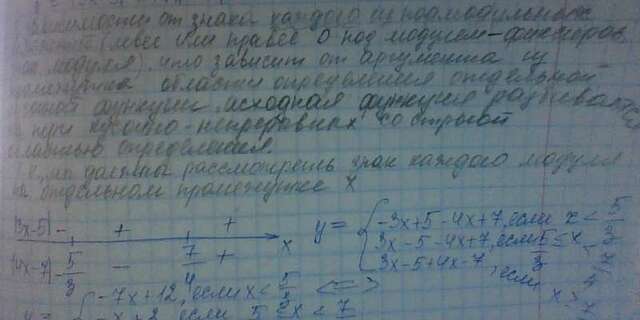 зависимости от знака каждого из подмодульных
(левее или правее 0 под модулем-
модуля), что зависит от аргумента из
области определения отдельной
функции исходная функция разбивается
три кусочно-непрерывных со строгой
областью определения.
мы должны рассмотреть знак каждого модуля
на отдельном промежутке x
|3x-5| - + +
x
|4x-7| - 5/3 - 7/4 +
y = { -3x+5-4x+7, если x < 5/3
3x-5-4x+7, если 5/3 ≤ x < 7/4
3x-5+4x-7, если x ≥ 7
-7x+12, если x < 5/3 <=>
-x+2, если 5 ≤ x < 7